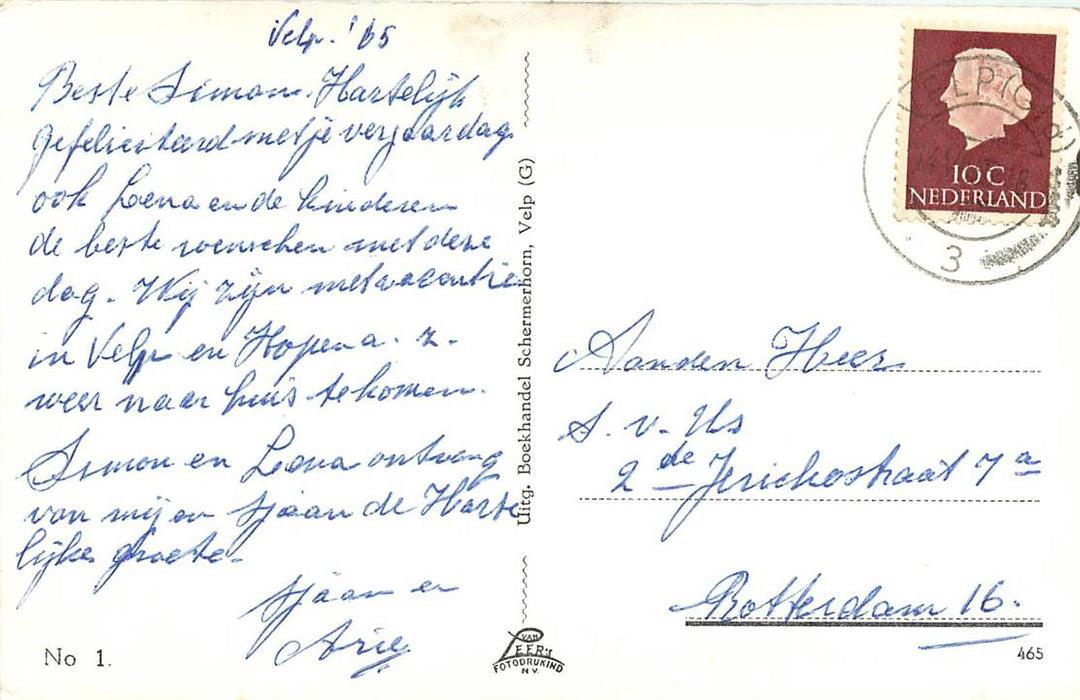 Velp. '65
Beste Simon. Hartelijk
gefeliciteerd met je verjaardag
ook Lena en de kinderen
de beste wenschen met deze
dag. Wij zijn met vacantie
in Velp en Hopen a. z.
weer naar huis te komen.
Simon en Lena ontvang
van mij en Sjaan de Harte
lijke groete.
Sjaan en
Arie
No 1.
Uitg. Boekhandel Schermerhorn, Velp (G)
VAN
LEER'S
FOTODRUKIND
N.V.
10 C
NEDERLAND
LP (G
3
Aan den Heer
S. v. Us
2de Jerichostraat 7a
Rotterdam 16.
465